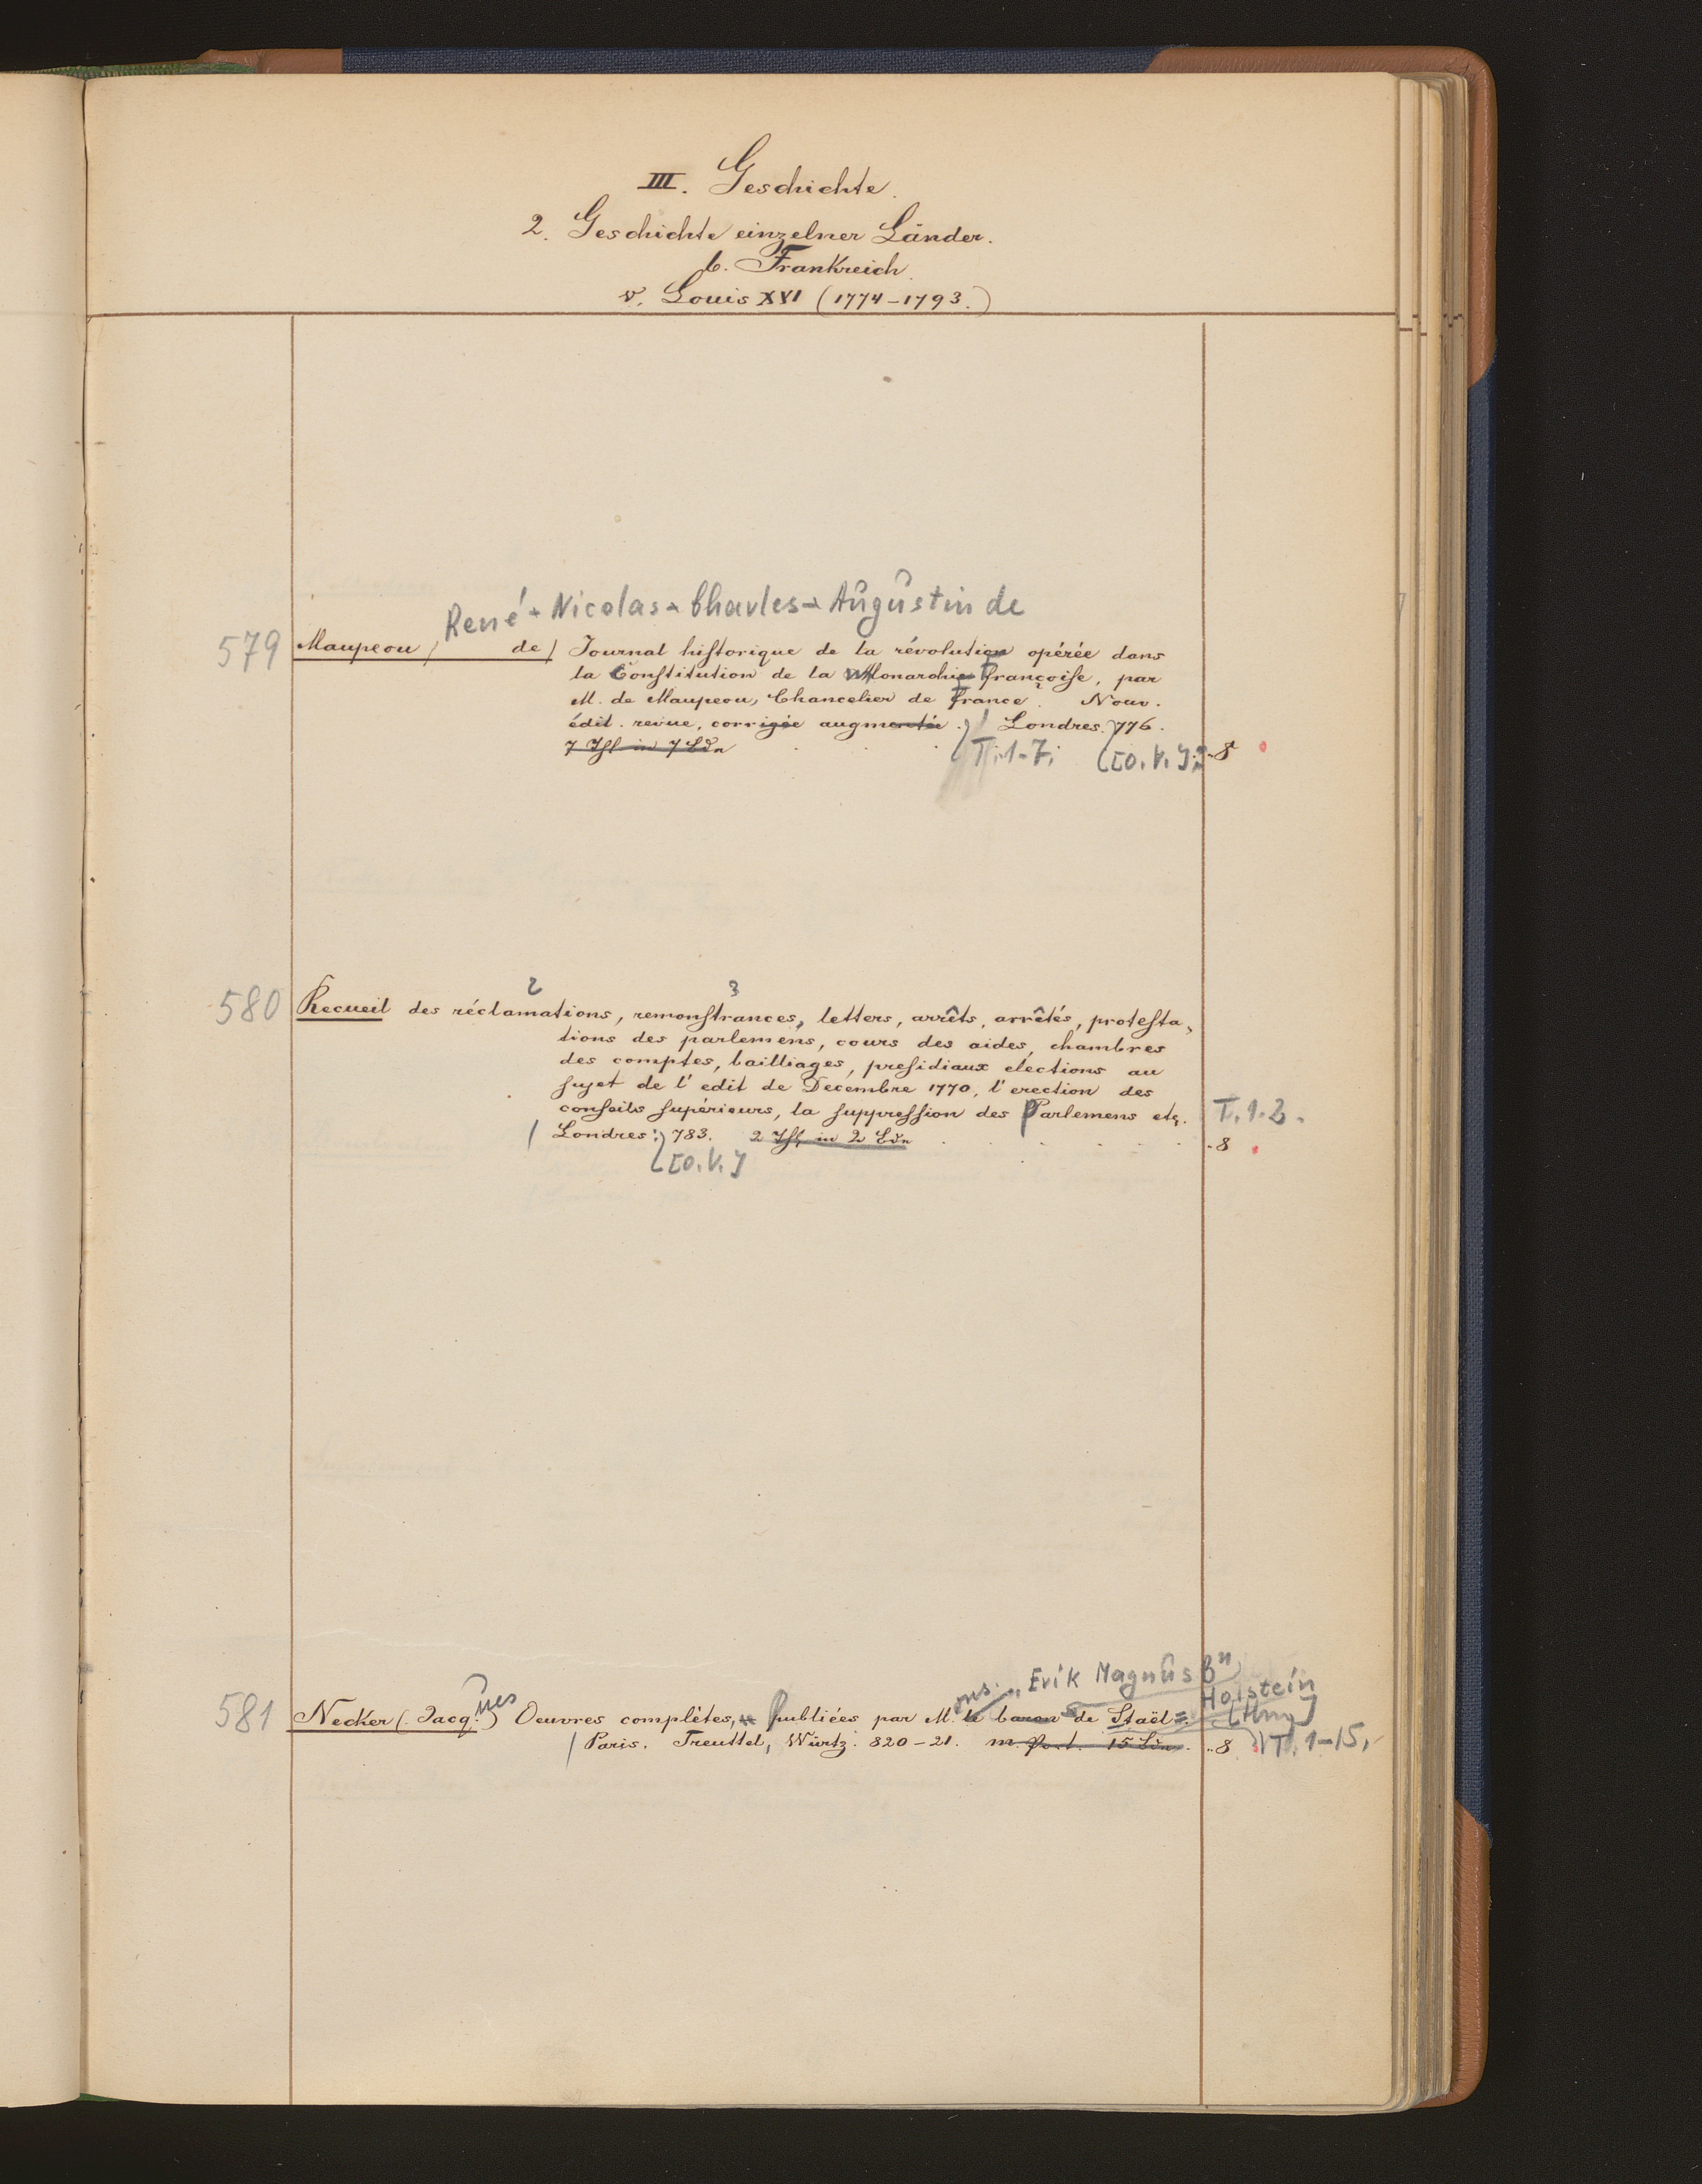 III. Geschichte.
2. Geschichte einzelner Länder.
b. Frankreich.
v. Louis XVI (1774-1793.)
René-Nicolas-Charles-Augustin de
579 Maupeou, de) Journal hiſtorique de la révolution opérée dans
la Conſtitution de la Monarchie françoiſe, par
M. de Maupeou, Chancelier de France. Nouv.
édit. revue, corrigée augmentée. Londres. 776.
T. 1-7. [O.V.] 8
2 3
580 Recueil des réclamations, remonſtrances, letters, arrêts, arrêtés, proteſta-
tions des parlemens, cours des aides, chambres
des comptes, bailliages, preſidiaux elections au
ſujet de l'edit de Decembre 1770, l'erection des
conſeils ſupérieurs, la ſuppreſſion des Parlemens etc. T. 1.2.
Londres: 783. 2 Thl. in 2 Bdn 8
[O.V.]
Erik Magnus Bn
Holstein
581 Necker (Jacques) Oeuvres complètes, publiées par M. le baron de Staël=. [Hrsg]
Paris. Treuttel, Würtz. 820-21. m. Port. 15 Bdn. 8 T. 1-15.